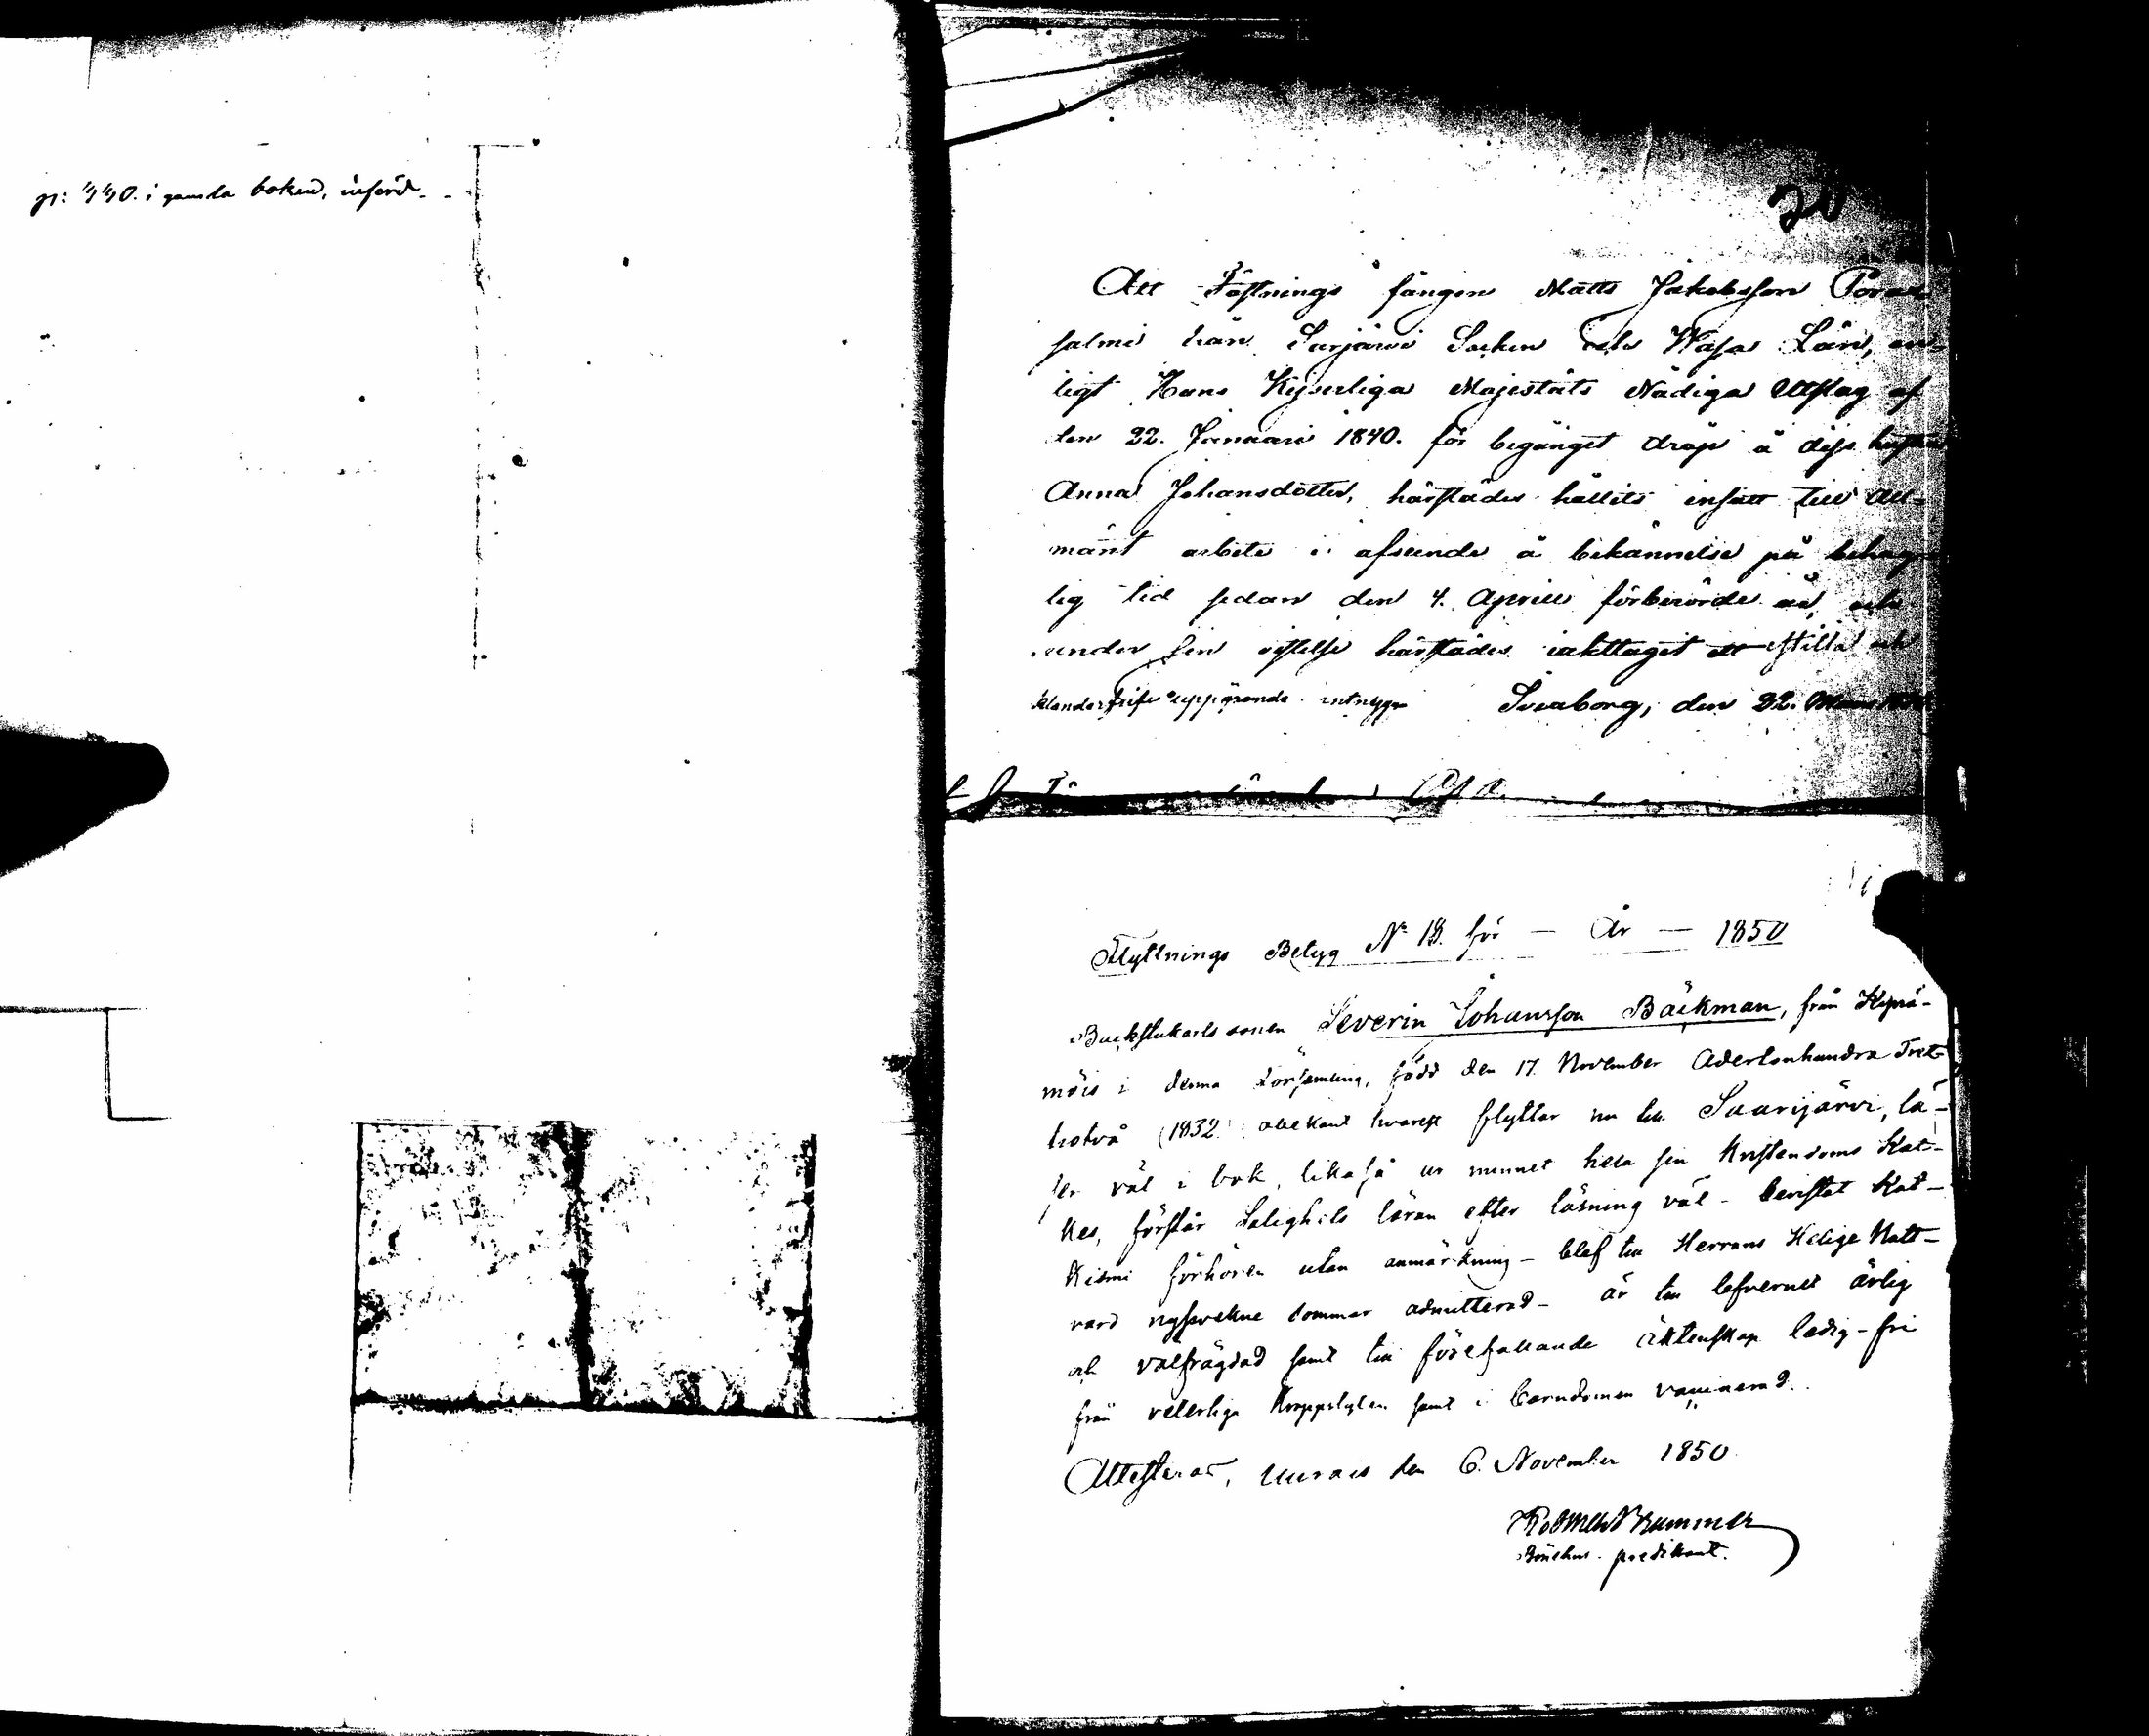 p: 440. i gamla boken, införd.
20
Att Fästnings fången Matts Jakobsson
salmi från Sarjärvi Socken och Wasa Län, en-
ligt Hans Kejserliga Majestäts Nådiga Utslag af
den 22. Januari 1840. för begånget dråp å dess hustru
Anna Johansdotter, härstädes hållits insatt till all-
mänt arbete i afseende å bekännelse på behag-
lig tid sedan den 4. Aprill förberörde år, och
under sin vistelse härstädes iakttagit ett stilla och
klanderfritt uppförande intygar Sveaborg, den 22. Mars
Flyttnings Betyg No 18. för — År — 1850
Backstukarls sonen Severin Johansson Bäckman, från Kipinä-
mois i denna Församling, född den 17. November Adertonhundra Tret-
tiotvå (1832) obekant hvarest flyttar nu till Saarijärvi, lä-
ser väl i bok, likaså ur minnet hela sin Kristendoms Kat-
kes, förstår Salighets läran efter läsning väl - bevistat Kat-
kismi förhören utan anmärkning - blef till Herrans Helige Natt-
vard nyssvekne sommar admitterad - är till lefvernet ärlig
och välfrägdad samt till förefallande äktenskap ledig - fri
från veterliga kroppslyten samt i barndomen vaccinerad.
Attesterar, Uurais den 6. November 1850
predikant.